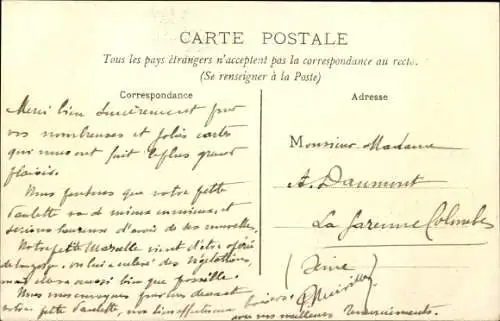 CARTE POSTALE
Tous les pays étrangers n'acceptent pas la correspondance au recto.
(Se renseigner à la Poste)
Correspondance
Adresse
Merci bien sincèrement pour
vos nombreuses et jolies cartes
qui nous ont fait le plus grand
plaisir.
Nous pensons que votre petite
Paulette va de mieux en mieux, et
serions heureux d'avoir de ses nouvelles.
Notre petite Marcelle vient d'être opérée
de la gorge, on lui a enlevé des végétations,
mais cela aussi bien que possible.
Nous vous envoyons pour
votre petite Paulette, nos bien affectueux baisers
avec nos meilleurs remerciements.
Monsieur Madame
A. Daumont
La Garenne Colombes
(Seine)